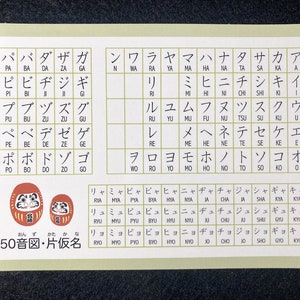 パ バ ダ ザ ガ ン ワ ラ ヤ マ ハ ナ タ サ カ ア
PA BA DA ZA GA N WA RA YA MA HA NA TA SA KA A
ピ ビ ヂ ジ ギ リ ミ ヒ ニ チ シ キ イ
PI BI JI JI GI RI MI HI NI CHI SHI KI I
プ ブ ヅ ズ グ ル ユ ム フ ヌ ツ ス ク ウ
PU BU ZU ZU GU RU YU MU FU NU TSU SU KU U
ペ ベ デ ゼ ゲ レ メ ヘ ネ テ セ ケ エ
PE BE DE ZE GE RE ME HE NE TE SE KE E
ポ ボ ド ゾ ゴ ヲ ロ ヨ モ ホ ノ ト ソ コ オ
PO BO DO ZO GO WO RO YO MO HO NO TO SO KO O
リャ ミャ ピャ ビャ ヒャ ニャ ヂャ チャ ジャ シャ ギャ キャ
RYA MYA PYA BYA HYA NYA JA CHA JA SHA GYA KYA
リュ ミュ ピュ ビュ ヒュ ニュ ヂュ チュ ジュ シュ ギュ キュ
RYU MYU PYU BYU HYU NYU JU CHU JU SHU GYU KYU
リョ ミョ ピョ ビョ ヒョ ニョ ヂョ チョ ジョ ショ ギョ キョ
RYO MYO PYO BYO HYO NYO JO CHO JO SHO GYO KYO
おん ず かた か な
50音図・片仮名